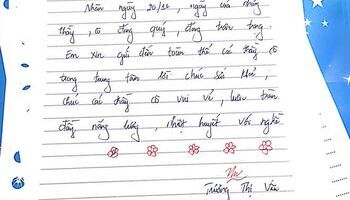 Nhân ngày 20/11, ngày của những
thầy, cô đáng quý, đáng trân trọng.
Em xin gửi đến toàn thể các thầy cô
trong trung tâm lời chúc
chúc các thầy cô vui vẻ, luôn tràn
đầy năng lượng, nhiệt huyết với nghề
Trương Thị